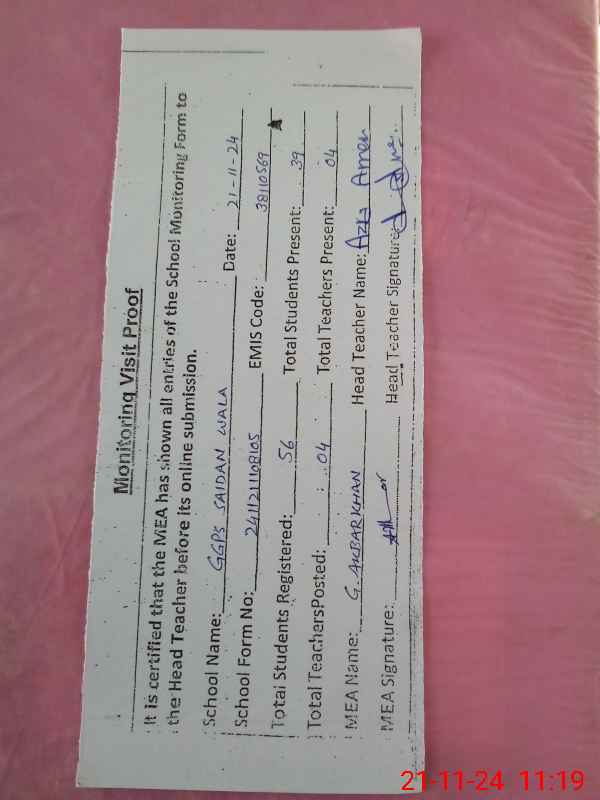 Monitoring Visit Proof
It is certified that the MEA has shown all entries of the School Monitoring Form to
the Head Teacher before its online submission.
School Name: GGPS SAIDAN WALA Date: 21-11-24
School Form No: 2411211108105 EMIS Code: 38110569
Total Students Registered: 56 Total Students Present: 39
Total TeachersPosted: 04 Total Teachers Present: 04
MEA Name: G. AKBARKHAN Head Teacher Name: Azra Ameer
MEA Signature: Head Teacher Signature:
21-11-24 11:19